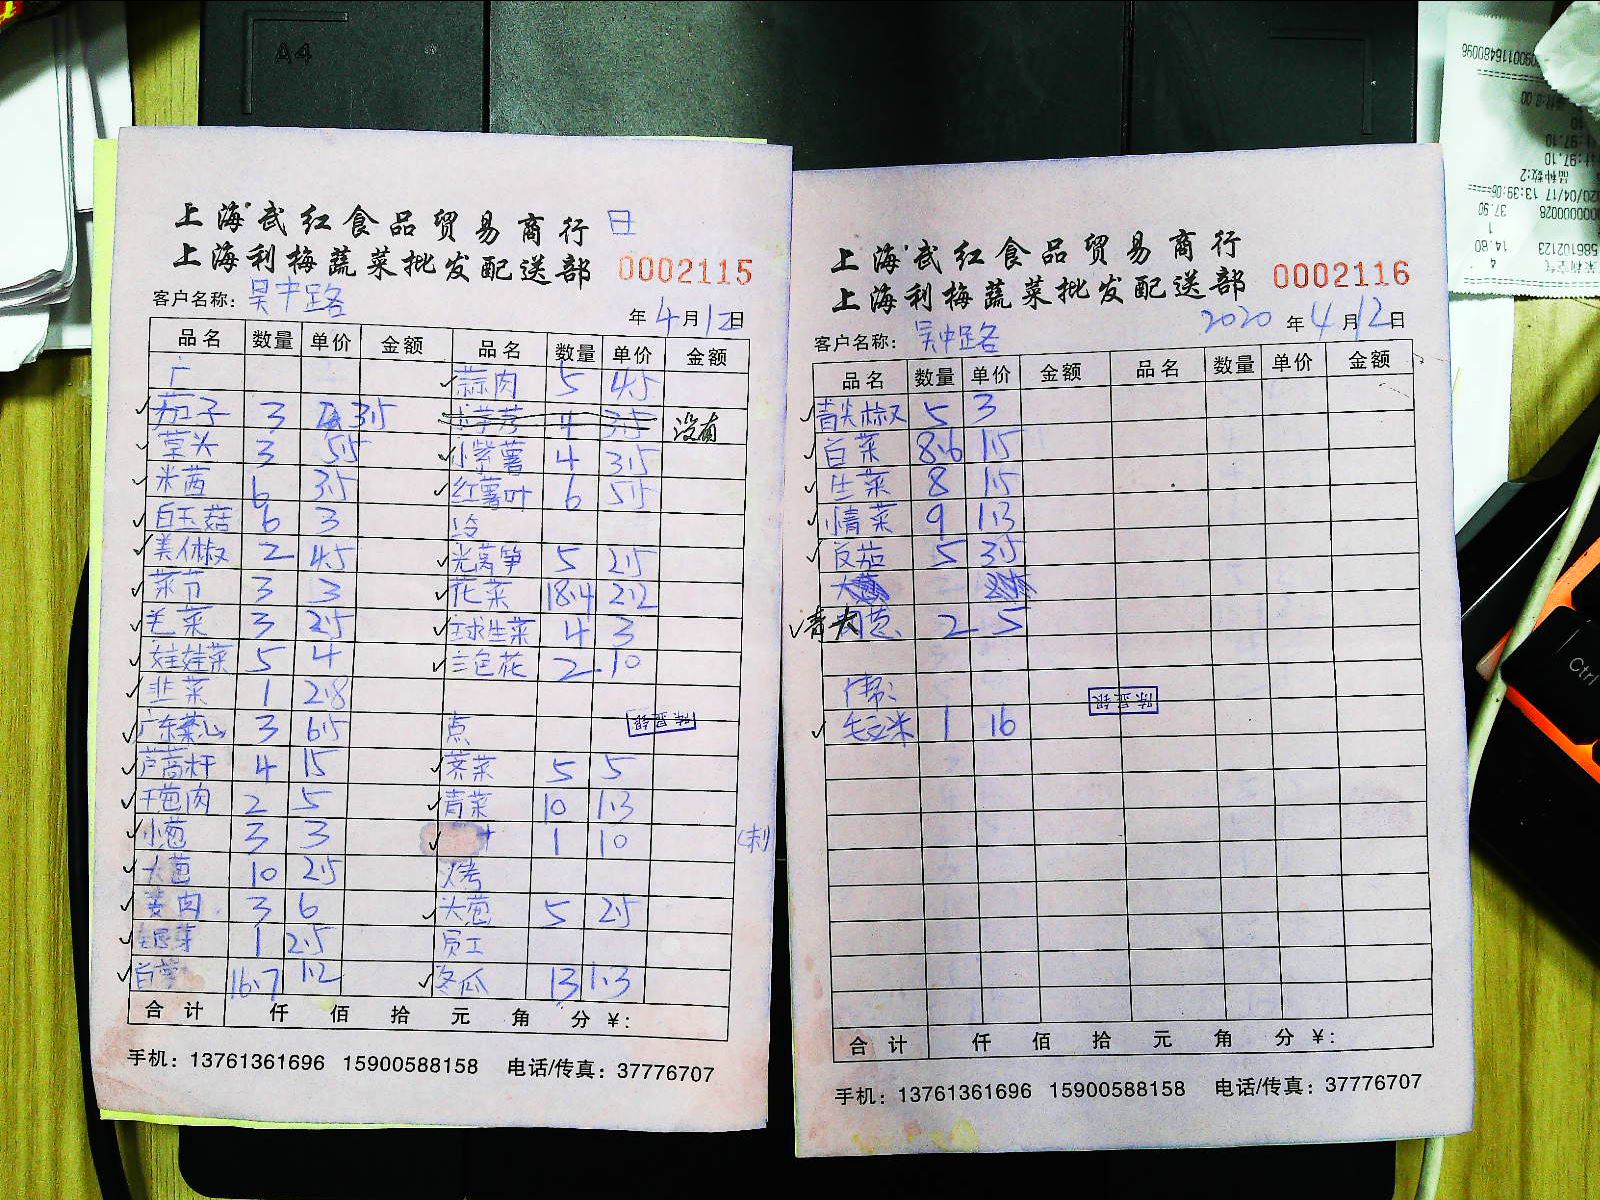 A4
上海武红食品贸易商行 日
上海利梅蔬菜批发配送部 0002115
客户名称：吴中路
年 4月12日
品名 数量 单价 金额 品名 数量 单价 金额
广 蒜肉 5 4.5
茄子 3 3.5 4 3.5 没有
草头 3 5.5 小紫薯 4 3.5
米茜 6 3.5 红薯叶 6 5.5
白玉菇 6 3 冷
美人椒 2 4.5 光莴笋 5 2.5
菜节 3 3 花菜 18.4 2.2
毛菜 3 2.5 球生菜 4 3
娃娃菜 5 4 三色花 2 10
韭菜 1 2.8
广东菜心 3 6.5 点
芦蒿杆 4 15 荠菜 5 5
干葱肉 2 5 青菜 10 1.3
小葱 3 3 1 10
大葱 10 2.5 烤
姜肉 3 6 大葱 5 2.5
1 2.5 员工
白 16.7 1.2 冬瓜 13 1.3
合计 仟 佰 拾 元 角 分 ¥：
手机：13761361696 15900588158 电话/传真：37776707
上海武红食品贸易商行
上海利梅蔬菜批发配送部 0002116
2020年4月12日
客户名称：吴中路
品名 数量 单价 金额 品名 数量 单价 金额
青尖椒 5 3
白菜 8.6 1.5
生菜 8 1.5
油菜 9 1.3
反茄 5 3.5
青大 2 5
毛豆米 1 16
合计 仟 佰 拾 元 角 分 ¥：
手机：13761361696 15900588158 电话/传真：37776707
品种数:2
37.90
14.80
Ctrl